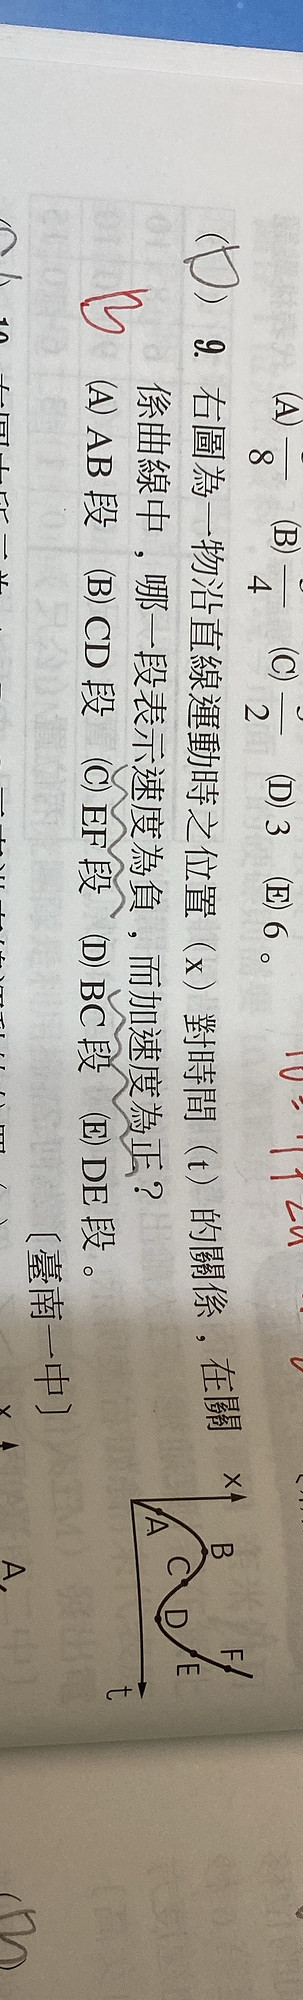 (A) 8 (B) 4 (C) 2 (D) 3 (E) 6。
(D) 9. 右圖為一物沿直線運動時之位置（x）對時間（t）的關係，在關
係曲線中，哪一段表示速度為負，而加速度為正？
B
(A) AB 段 (B) CD 段 (C) EF 段 (D) BC 段 (E) DE 段。
〔臺南一中〕
x
B
F
A
C
D
E
t
x
A
(B)